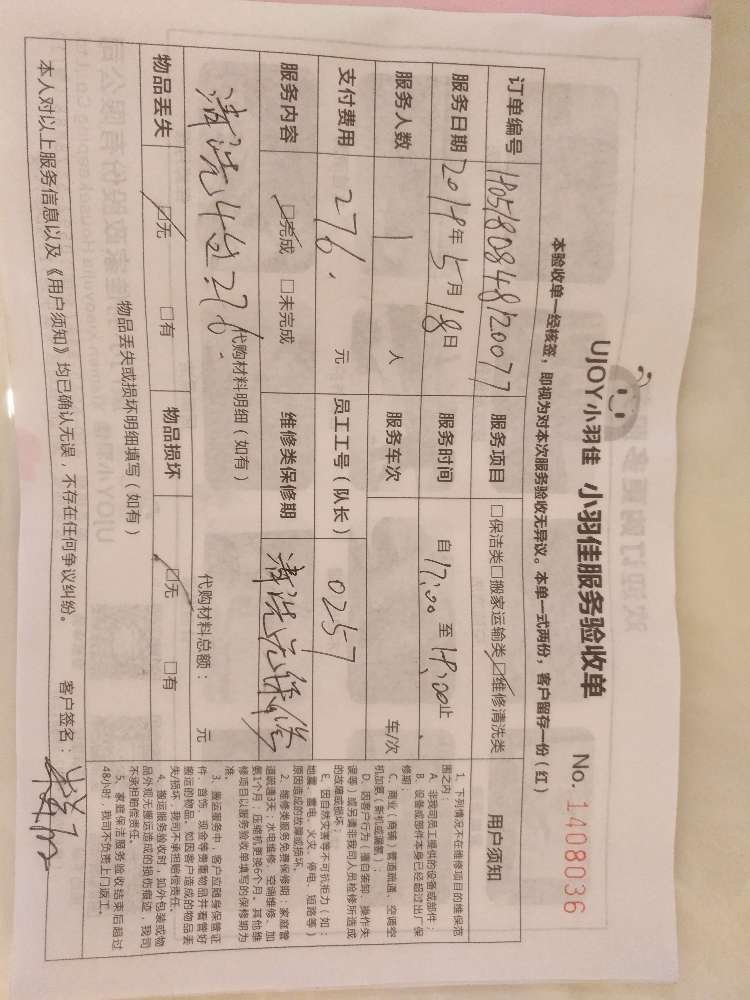 UJOY小羽佳 小羽佳服务验收单 No. 1408036
本验收单一经核签，即视为对本次服务验收无异议。本单一式两份，客户留存一份（红）
订单编号 服务项目 □保洁类□搬家运输类☑维修清洗类
服务日期 2018年5月18日 服务时间 自17:00至18:00止
服务人数 1 人 服务车次 车/次
支付费用 276. 元 员工工号（队长） 0257
服务内容 ☑完成 □未完成 维修类保修期 清洗无保修
清洗4台276.
代购材料明细（如有） 代购材料总额： 元
物品丢失 ☑无 □有 物品损坏 ☑无 □有
物品丢失或损坏明细填写（如有）
本人对以上服务信息以及《用户须知》均已确认无误，不存在任何争议纠纷。 客户签名：
用户须知
1、下列情况不在维修项目的维保范
围之内：
A、非我司员工提供的设备或部件；
B、设备或部件本身已经超过出厂保
修期；
C、商业（商铺）管道疏通、空调空
机加氨（新机或漏氨）；
D、因客户行为（擅自装卸、操作失
误等）或另请非我司人员检修所造成
的故障或损坏；
E、因自然灾害等不可抗拒力（如：
地震、雷电、火灾、停电、短路等）
原因造成的故障或损坏。
2、维修类服务免费保修期：家庭管
道疏通3天；水电维修、空调维修、加
氨1个月；压缩机更换6个月。其他维
修项目以服务验收单填写的保修期为
准。
3、搬运服务中，客户应随身保管证
件、首饰、现金等贵重物品并看管好
搬运的物品。如因客户造成的物品丢
失/损坏，我司不承担赔偿责任。
4、搬运服务验收时，如外包装或物
品外观无搬运造成的损伤痕迹，我司
不承担赔偿责任。
5、家庭保洁服务验收结束后超过
48小时，我司不负责上门返工。